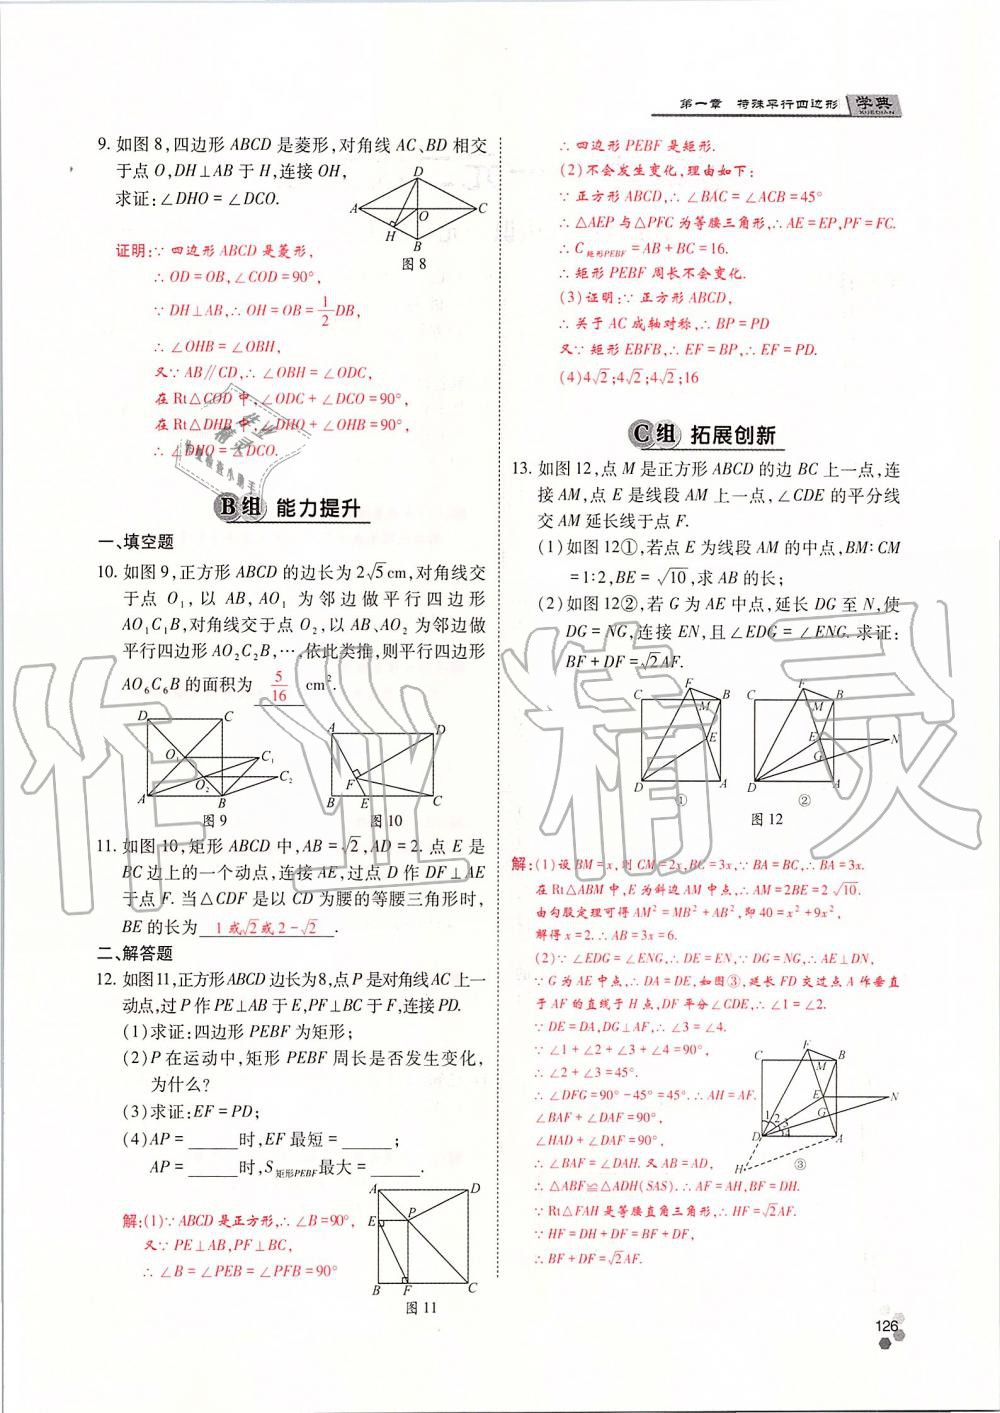 第一章 特殊平行四边形 学典
XUEDIAN
9. 如图 8,四边形 ABCD 是菱形,对角线 AC、BD 相交
于点 O,DH⊥AB 于 H,连接 OH,
求证:∠DHO=∠DCO.
D
A
O
C
H
B
图 8
证明:∵四边形 ABCD 是菱形,
∴OD=OB,∠COD=90°,
∵DH⊥AB,∴OH=OB=1/2DB,
∴∠OHB=∠OBH,
又∵AB∥CD,∴∠OBH=∠ODC,
在 Rt△COD 中,∠ODC+∠DCO=90°,
在 Rt△DHB 中,∠DHO+∠OHB=90°,
∴∠DHO=∠DCO.
B组 能力提升
一、填空题
10. 如图 9,正方形 ABCD 的边长为 2√5 cm,对角线交
于点 O₁,以 AB,AO₁ 为邻边做平行四边形
AO₁C₁B,对角线交于点 O₂,以 AB、AO₂ 为邻边做
平行四边形 AO₂C₂B,…,依此类推,则平行四边形
AO₆C₆B 的面积为 5/16 cm².
D C
O₁ C₁
O₂ C₂
A B
图 9
A D
F
B E C
图 10
11. 如图 10,矩形 ABCD 中,AB=√2,AD=2. 点 E 是
BC 边上的一个动点,连接 AE,过点 D 作 DF⊥AE
于点 F. 当△CDF 是以 CD 为腰的等腰三角形时,
BE 的长为 1或√2或2-√2 .
二、解答题
12. 如图11,正方形ABCD边长为8,点P是对角线AC上一
动点,过 P 作 PE⊥AB 于 E,PF⊥BC 于 F,连接PD.
(1)求证:四边形 PEBF 为矩形;
(2)P 在运动中,矩形 PEBF 周长是否发生变化,
为什么?
(3)求证:EF=PD;
(4)AP=______时,EF 最短=______;
AP=______时,S矩形PEBF最大=______.
解:(1)∵ABCD是正方形,∴∠B=90°,
又∵PE⊥AB,PF⊥BC,
∴∠B=∠PEB=∠PFB=90°
A D
E P
B F C
图 11
∴四边形 PEBF 是矩形.
(2)不会发生变化,理由如下:
∵正方形 ABCD,∴∠BAC=∠ACB=45°
∴△AEP 与△PFC 为等腰三角形,∴AE=EP,PF=FC.
∴C矩形PEBF=AB+BC=16.
∴矩形 PEBF 周长不会变化.
(3)证明:∵正方形 ABCD,
∴关于 AC 成轴对称,∴BP=PD
又∵矩形 EBFB,∴EF=BP,∴EF=PD.
(4)4√2;4√2;4√2;16
C组 拓展创新
13. 如图 12,点 M 是正方形 ABCD 的边 BC 上一点,连
接 AM,点 E 是线段 AM 上一点,∠CDE 的平分线
交 AM 延长线于点 F.
(1)如图 12①,若点 E 为线段 AM 的中点,BM∶CM
=1∶2,BE=√10,求 AB 的长;
(2)如图 12②,若 G 为 AE 中点,延长 DG 至 N,使
DG=NG,连接 EN,且∠EDG=∠ENG. 求证:
BF+DF=√2AF.
F
C B
M
E
D A
①
F
C B
M
E N
G
D A
②
图 12
解:(1)设 BM=x,则 CM=2x,BC=3x,∵BA=BC,∴BA=3x.
在 Rt△ABM 中,E 为斜边 AM 中点,∴AM=2BE=2√10.
由勾股定理可得 AM²=MB²+AB²,即 40=x²+9x²,
解得 x=2.∴AB=3x=6.
(2)∵∠EDG=∠ENG,∴DE=EN,∵DG=NG,∴AE⊥DN,
∵G 为 AE 中点,∴DA=DE,如图③,延长 FD 交过点 A 作垂直
于 AF 的直线于 H 点,DF 平分∠CDE,∴∠1=∠2.
∵DE=DA,DG⊥AF,∴∠3=∠4.
∵∠1+∠2+∠3+∠4=90°,
∴∠2+∠3=45°.
∴∠DFG=90°-45°=45°.∴AH=AF.
∠BAF+∠DAF=90°,
∠HAD+∠DAF=90°,
∴∠BAF=∠DAH. 又 AB=AD,
∴△ABF≌△ADH(SAS).∴AF=AH,BF=DH.
∵Rt△FAH 是等腰直角三角形,∴HF=√2AF.
∵HF=DH+DF=BF+DF,
∴BF+DF=√2AF.
F
C B
M
E N
G
1 2 3 4
D A
H
③
126
作业精灵